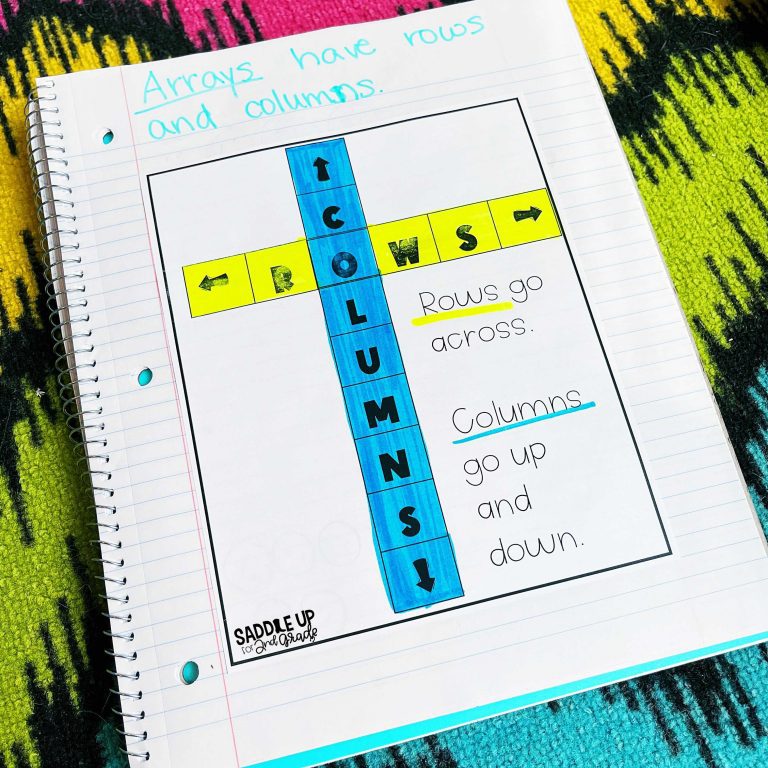 Arrays have rows
and columns.
↑
C
← R O W S →
L
U
M
N
S
↓
Rows go
across.
Columns
go up
and
down.
SADDLE UP
for 2nd Grade